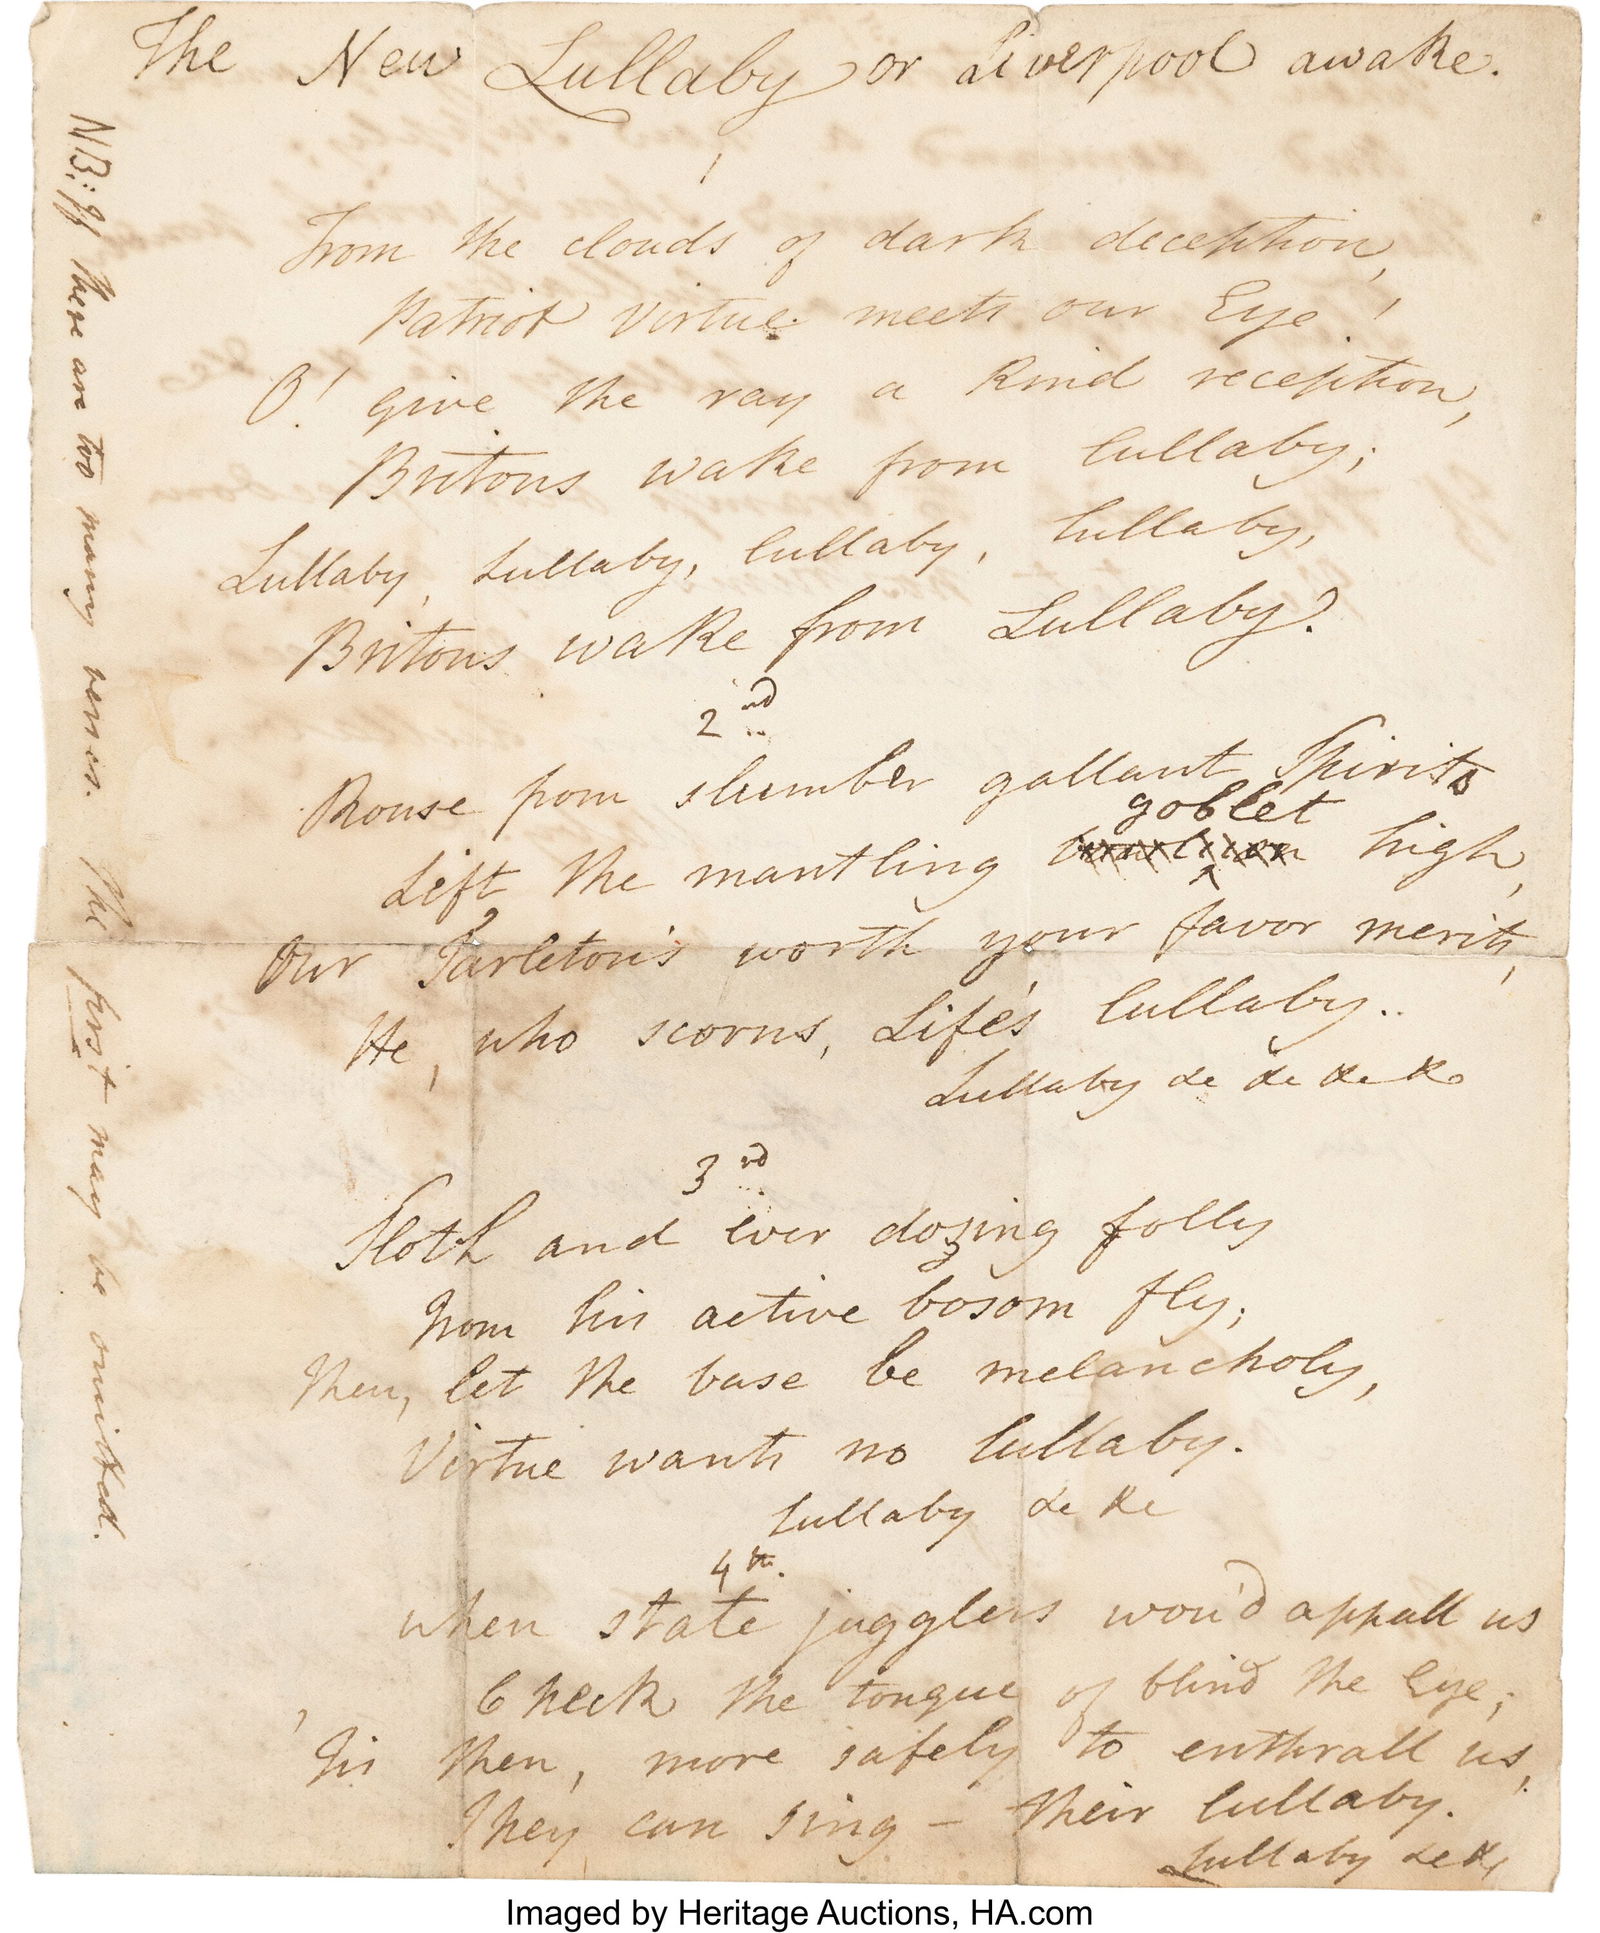 The New Lullaby or Liverpool awake.
1
From the clouds of dark deception,
Patriot Virtue meets our Eye!
O! give the ray a kind reception,
Britons wake from lullaby;
Lullaby, Lullaby, lullaby, lullaby,
Britons wake from Lullaby?
2nd
Rouse from slumber gallant Spirits
goblet
Lift the mantling high,
Our Tarleton's worth your favor merits,
He, who scorns, Life's lullaby..
Lullaby &c &c &c &c
3rd
Sloth and ever dozing folly
From his active bosom fly;
Then, let the base be melancholy,
Virtue wants no lullaby.
Lullaby &c &c
4th.
When state jugglers wou'd appall us
Check the tongue of blind the Eye;
'Tis then, more safely to enthrall us,
They can sing - their lullaby.
Lullaby &c &c
NB: If there are too many verses. The first may be omitted.
Imaged by Heritage Auctions, HA.com